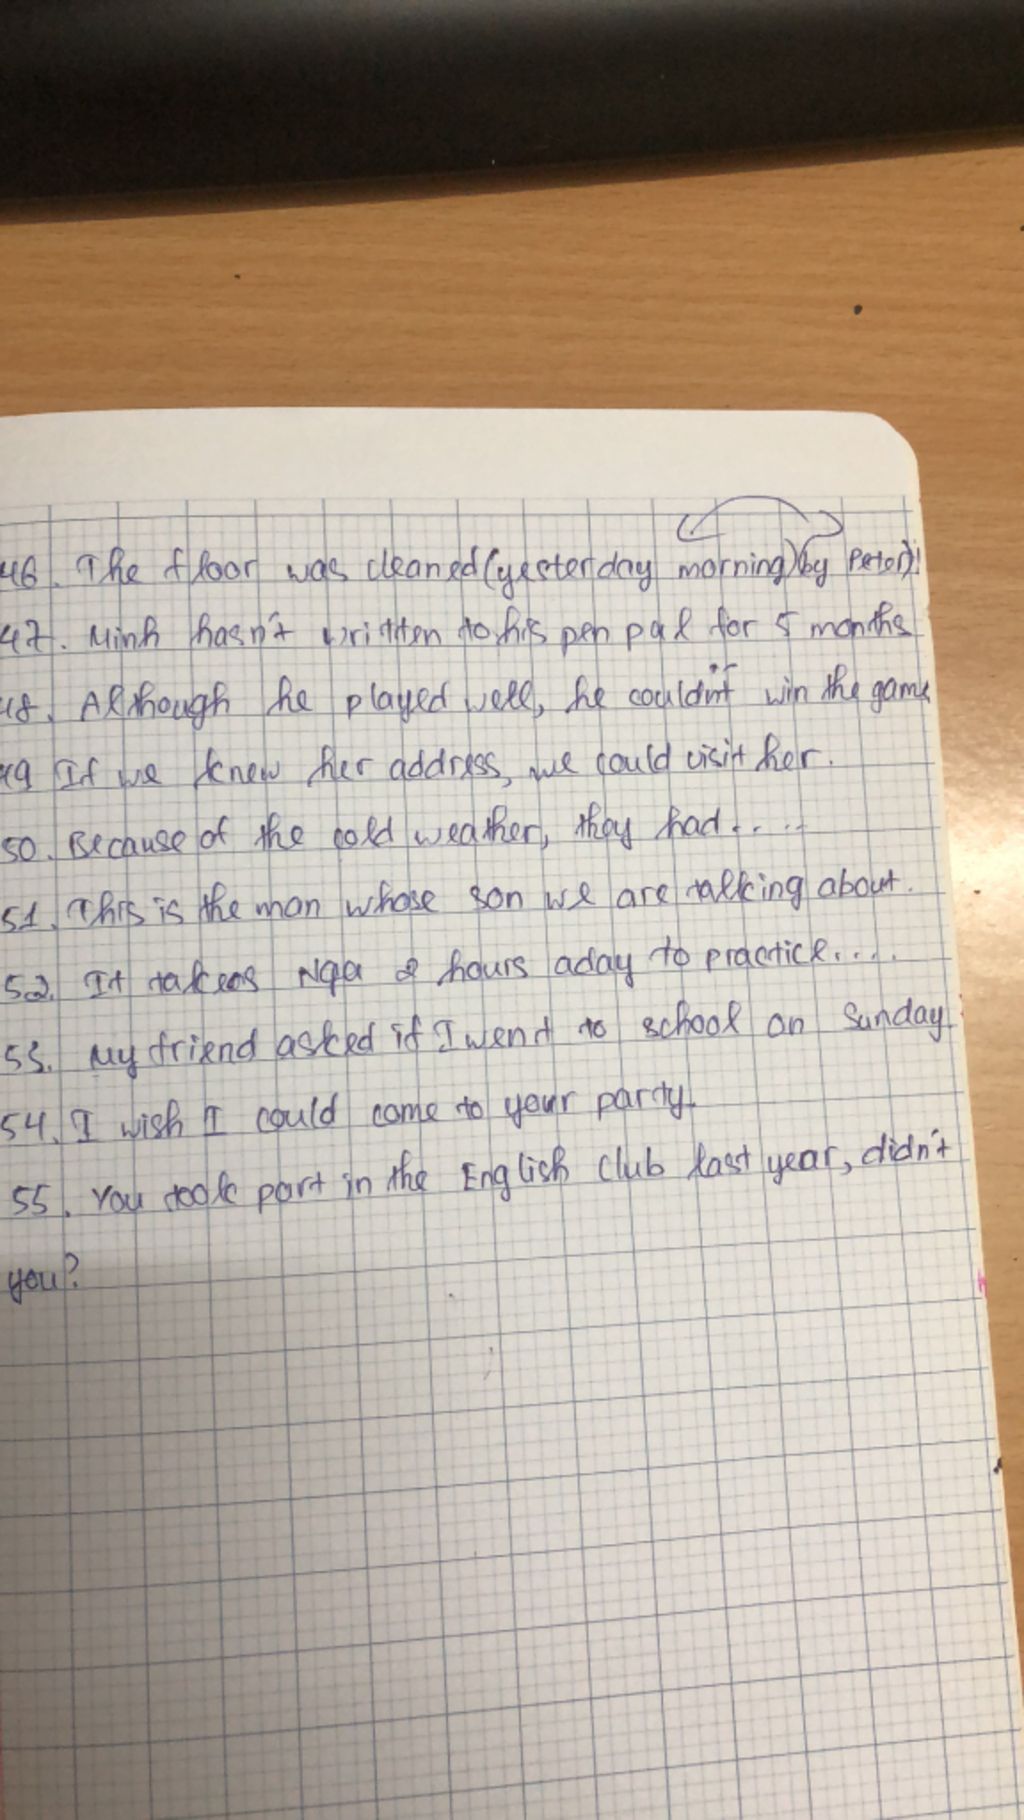 46. The floor was cleaned (yesterday morning) (by Peter)!
47. Minh hasn't written to his pen pal for 5 months
48. Although he played well, he couldn't win the game
49 If we knew her address, we could visit her.
50. Because of the cold weather, they had....
51. This is the man whose son we are talking about.
52. It takes Nga 2 hours aday to practice....
53. My friend asked if I went to school on Sunday
54. I wish I could come to your party.
55. You took part in the English club last year, didn't
you?